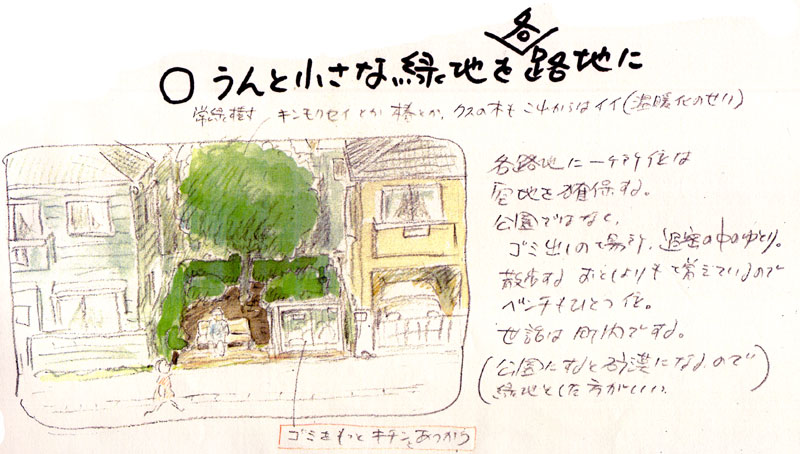 ○ うんと小さな緑地を各路地に
常緑樹 キンモクセイとか 椿とか、クスの木も これからはイイ(温暖化のせい)
各路地に一ヶ所位は
空地を確保する。
公園ではなく、
ゴミ出しの場所、過密の中のゆとり。
散歩する おとしよりもて増えているので
ベンチもひとつ位。
世話は町内でする。
(公園にすると砂漠になるので
緑地とした方がいい)
ゴミをもっとキチンとあつかう